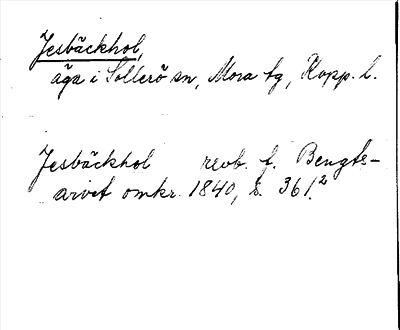 Jesbäckhol,
äga i Sollerö sn, Mora tg, Kopp. l.
Jesbäckhol revb. f. Bengts-
arvet omkr. 1840, s. 361.2